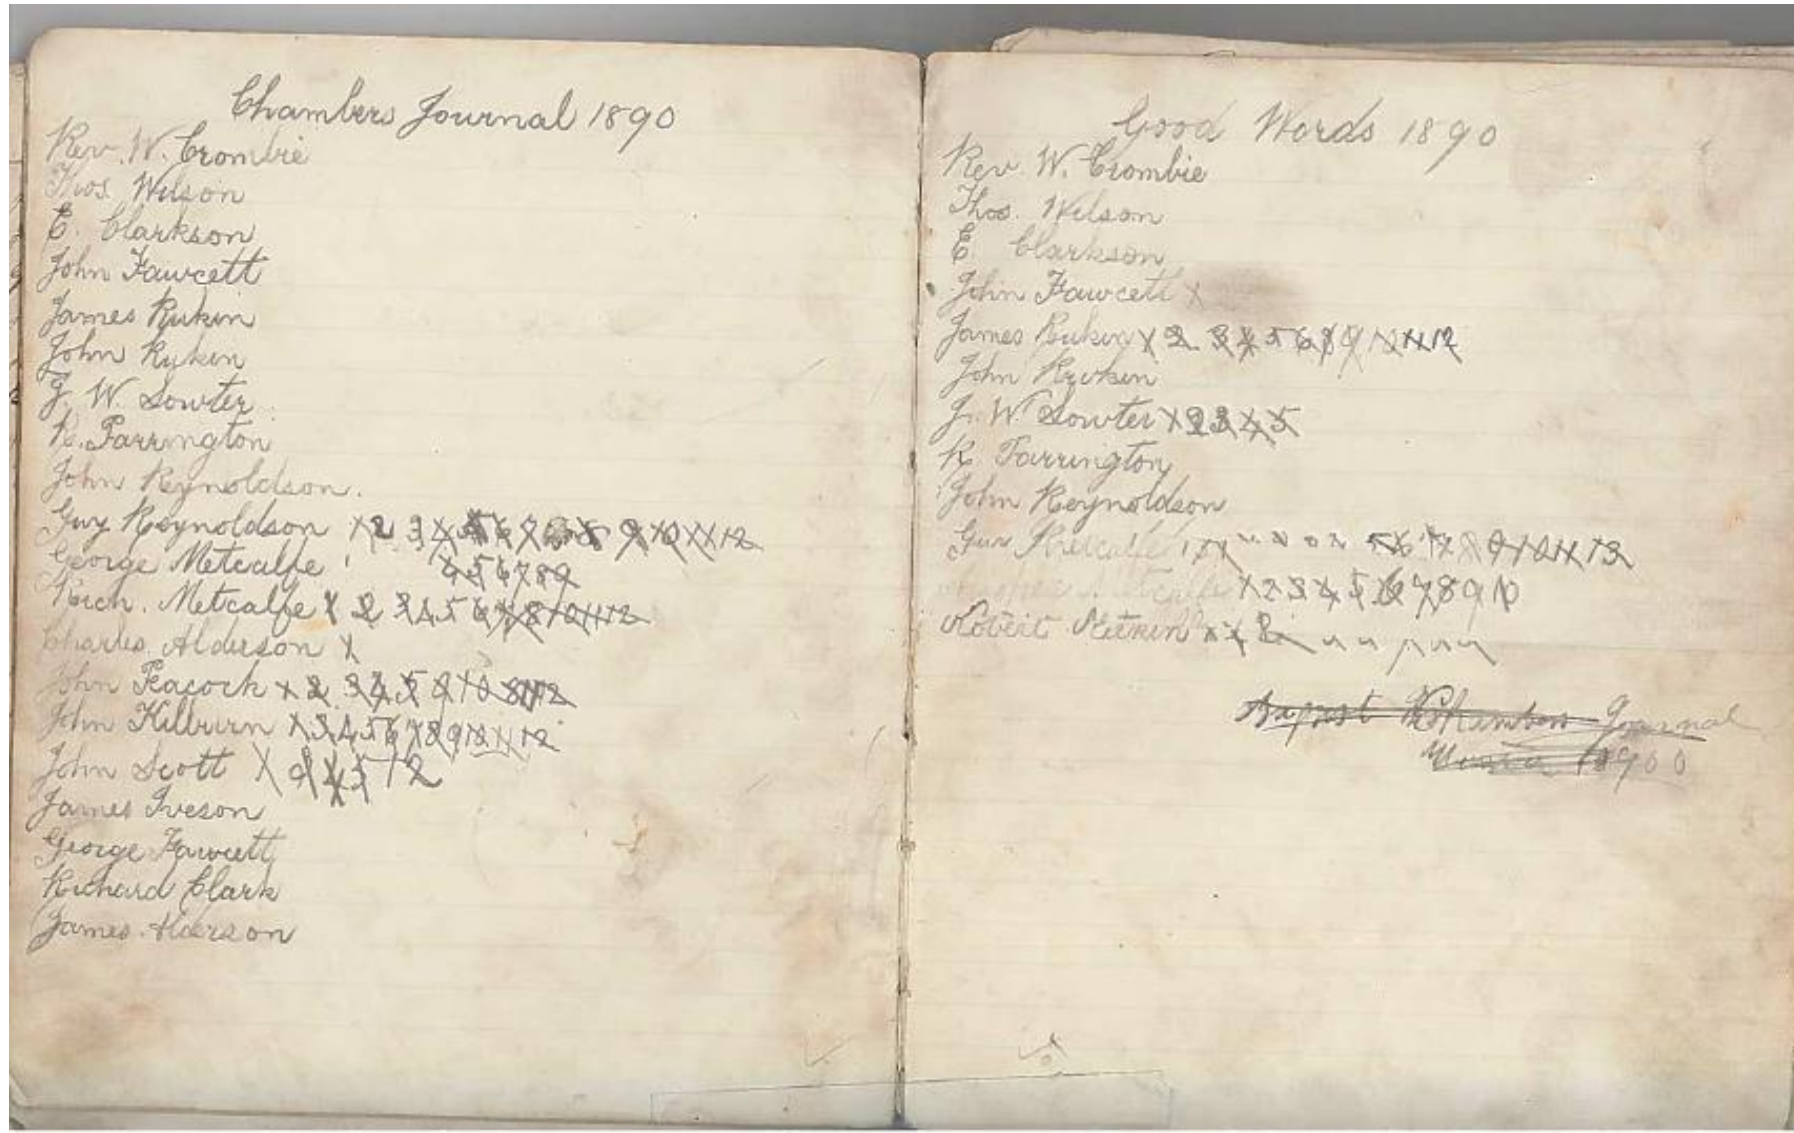 Chambers Journal 1890
Rev. W. Crombie
Thos. Wilson
E. Clarkson
John Fawcett
James Rukin
John Rukin
J. W. Sowter
R. Parrington
John Reynoldson.
Guy Reynoldson X 2 3 4 5 6 7 8 9 10 11 12
George Metcalfe
4 5 6 7 8 9
Rich. Metcalfe X 2 3 4 5 6 7 8 10 11 12
Charles Alderson X
John Peacock X 2 3 4 5 9 10 8 11 12
John Kilburn X 3 4 5 6 7 8 9 10 11 12
John Scott X 4 5 12
James Iveson
George Fawcett
Richard Clark
James Alderson
Good Words 1890
Rev. W. Crombie
Thos. Wilson
E. Clarkson
John Fawcett X
James Rukin X 2 3 4 5 6 8 9 10 11 12
John Rukin
J. W. Sowter X 2 3 4 5
R. Parrington
John Reynoldson
Metcalfe 5 6 7 8 9 10 11 12
Metcalfe X 2 3 4 5 6 7 8 9 10
Robert X X 2
August Chambers Journal
1900